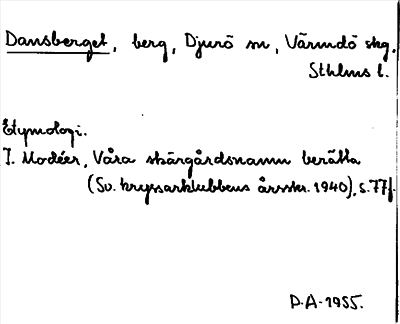 Dansberget, berg, Djurö sn, Värmdö skg.
Sthlms l.
Etymologi.
I. Modéer, Våra skärgårdsnamn berätta
(Sv. kryssarklubbens årsskr. 1940), s. 77f.
P.A. 1955.